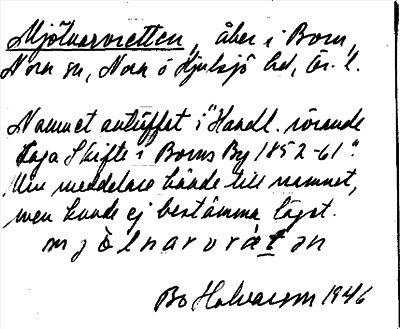 Mjölnarvretten, åker i Born,
Nora sn, Nora o Hjulsjö hd, Ör. l.
Namnet anträffat i "Handl. rörande
Laga Skifte i Borns By 1852-61".
Min meddelare kände till namnet,
men kunde ej bestämma läget.
Bo Halvarson 1946